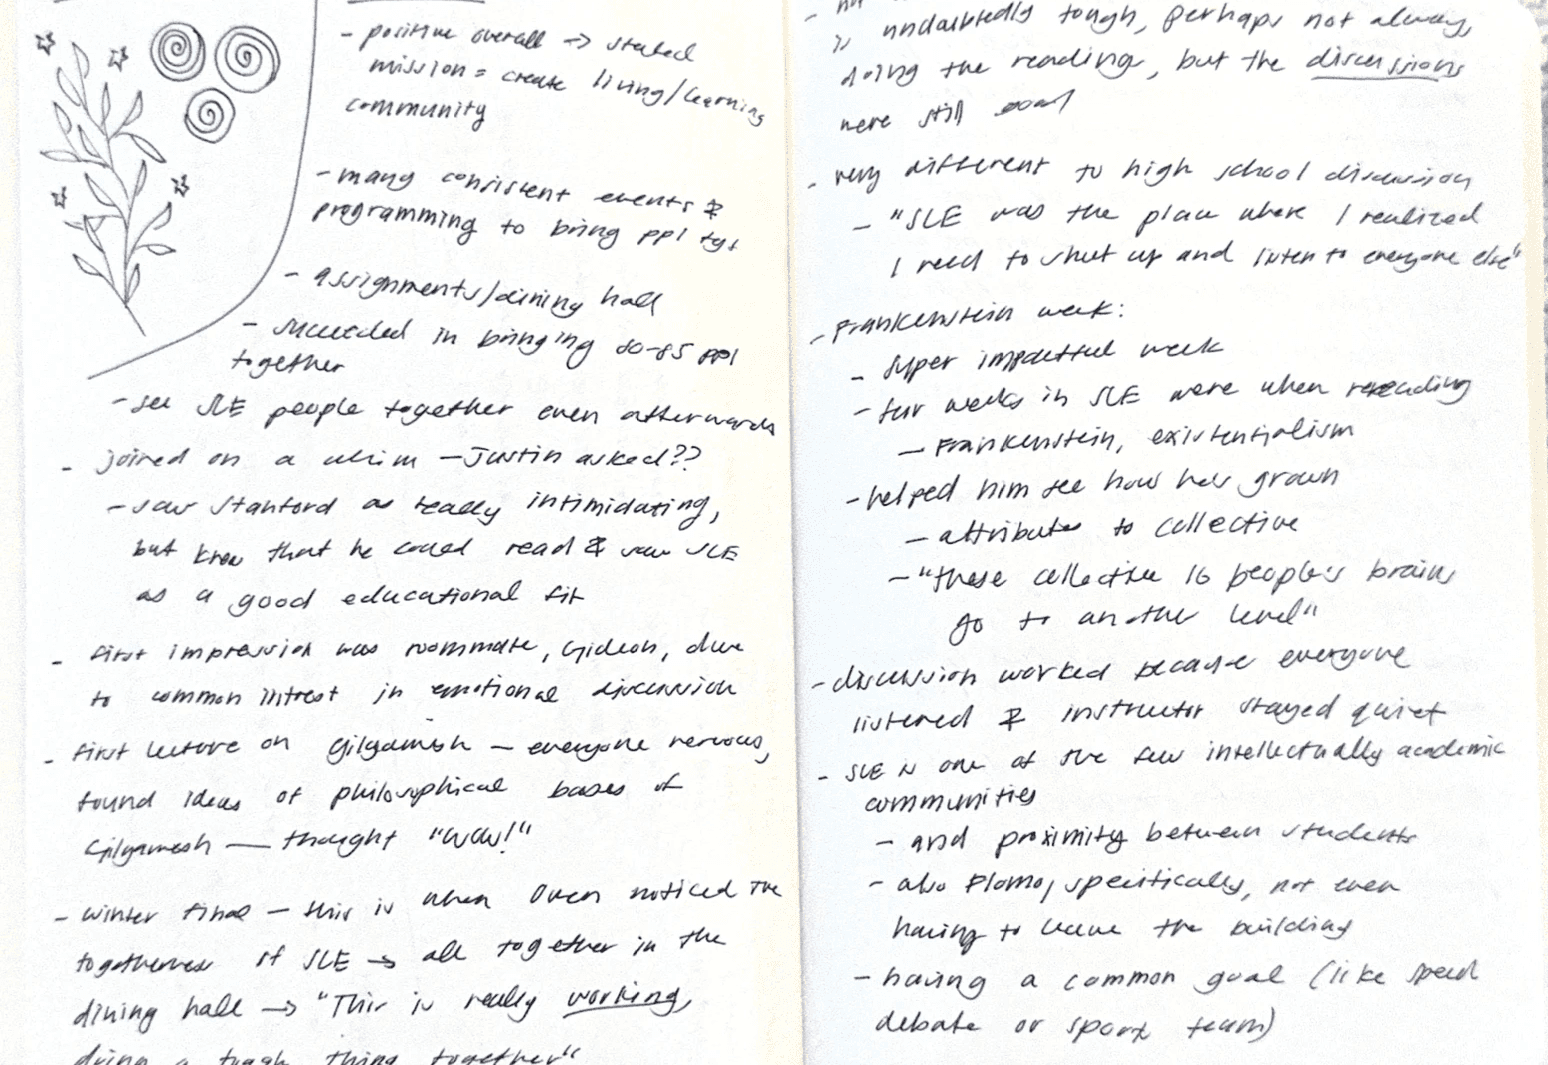 - positive overall -> stated
mission = create living/learning
community
- many consistent events &
programming to bring ppl tgt
- assignments/dining hall
- succeeded in bringing 80-85 ppl
together
- see SLE people together even afterwards
- joined on a whim - Justin asked??
- saw Stanford as really intimidating,
but knew that he could read & saw SLE
as a good educational fit
- first impression was roommate, Gideon, due
to common intrest in emotional discussion
- first lecture on Gilgamesh - everyone nervous,
found ideas of philosophical bases of
Gilgamesh — thought "WOW!"
- winter final - this is when Owen noticed the
togetherness of SLE -> all together in the
dining hall -> "This is really working,
doing a tough thing together"
is undoubtedly tough, perhaps not always
doing the reading, but the discussions
were still good
- very different to high school discussion
- "SLE was the place where I realized
I need to shut up and listen to everyone else"
- Frankenstein week:
- super impactful week
- fav weeks in SLE were when rereading
- Frankenstein, existentialism
- helped him see how he's grown
- attributes to collective
- "these collective 16 people's brains
go to another level"
- discussion worked because everyone
listened & instructor stayed quiet
- SLE is one of the few intellectually academic
communities
- and proximity between students
- also FloMo, specifically, not even
having to leave the building
- having a common goal (like speed
debate or sport team)